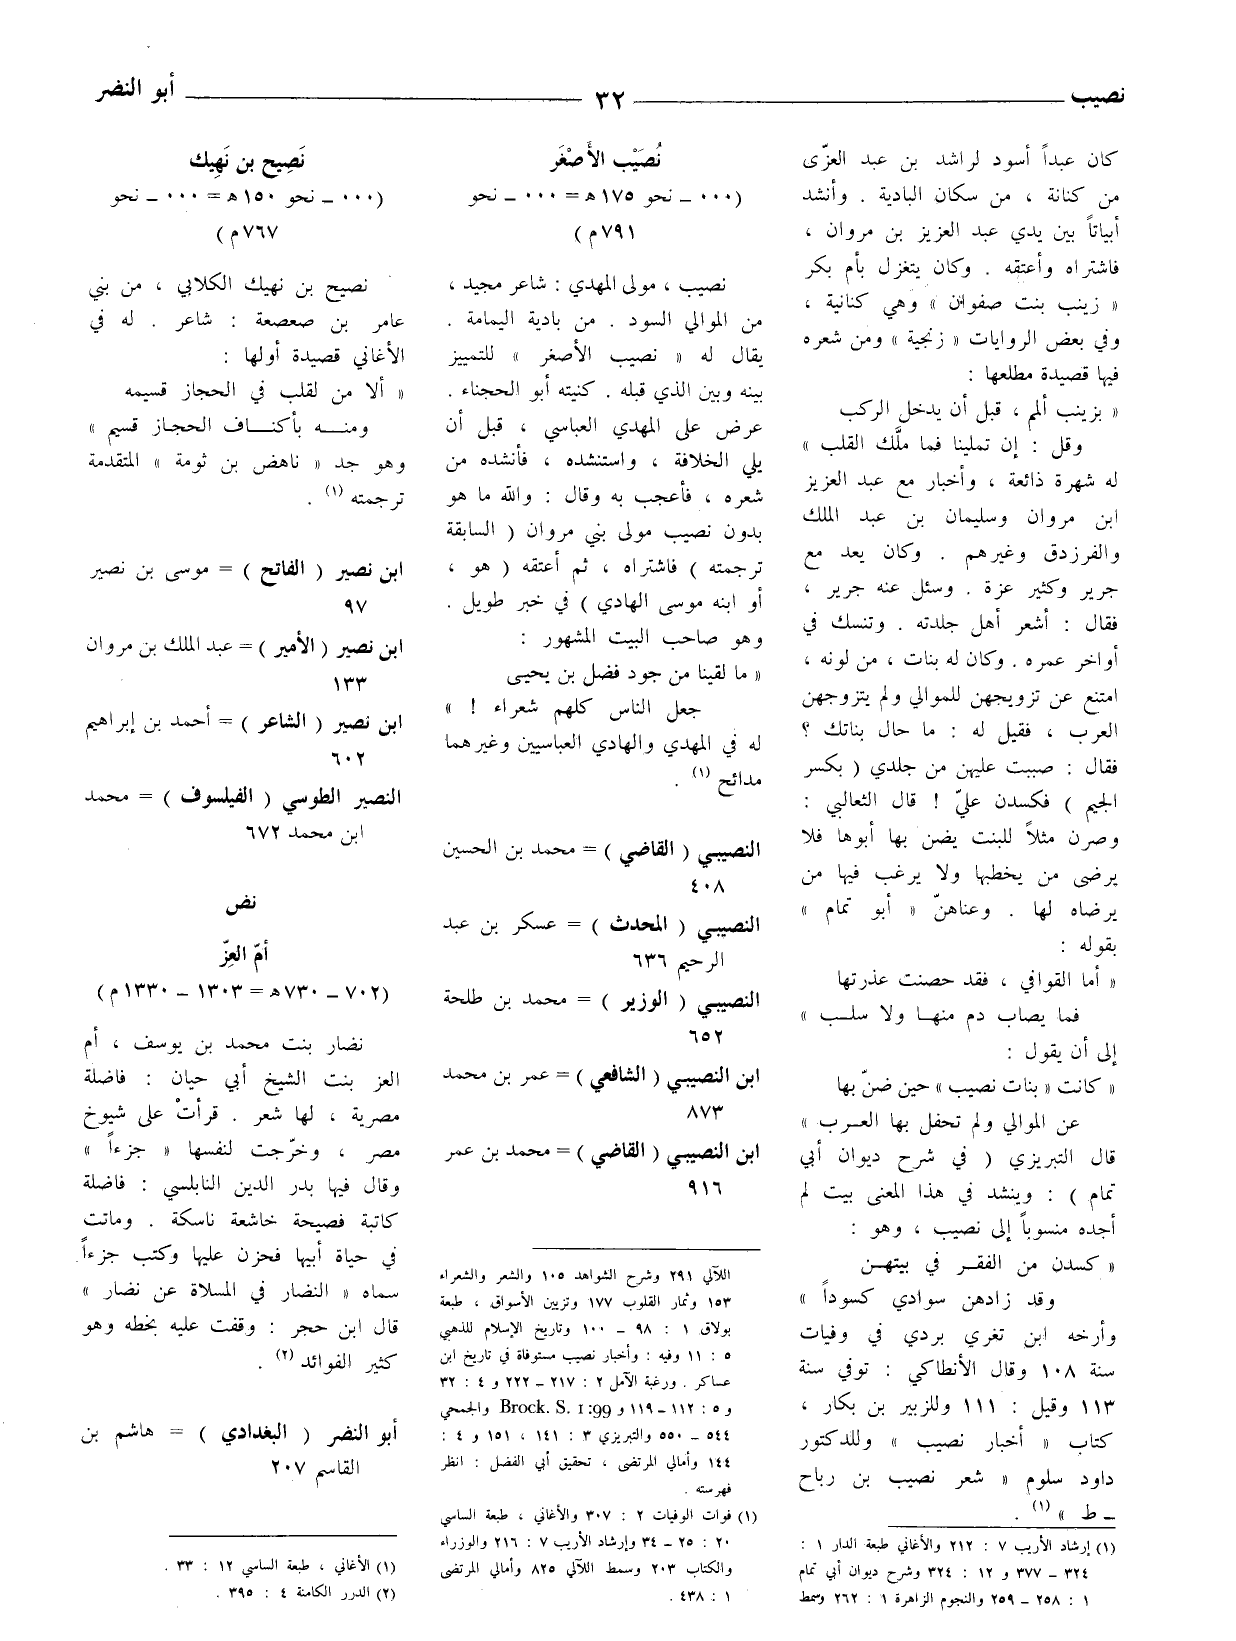 نصيب ٣٢ أبو النضر
كان عبداً أسود لراشد بن عبد العزّى
من كنانة ، من سكان البادية . وأنشد
أبياتاً بين يدي عبد العزيز بن مروان ،
فاشتراه وأعتقه . وكان يتغزل بأم بكر
« زينب بنت صفوان » وهي كنانية ،
وفي بعض الروايات « زنجية » ومن شعره
فيها قصيدة مطلعها :
« بزينب ألمم ، قبل أن يدخل الركب
وقل : إن تملينا فما ملَّك القلب »
له شهرة ذائعة ، وأخبار مع عبد العزيز
ابن مروان وسليمان بن عبد الملك
والفرزدق وغيرهم . وكان يعد مع
جرير وكثير عزة . وسئل عنه جرير ،
فقال : أشعر أهل جلدته . وتنسك في
أواخر عمره . وكان له بنات ، من لونه ،
امتنع عن تزويجهن للموالي ولم يتزوجهن
العرب ، فقيل له : ما حال بناتك ؟
فقال : صببت عليهن من جلدي ( بكسر
الجيم ) فكسدن عليّ ! قال الثعالبي :
وصرن مثلاً للبنت يضن بها أبوها فلا
يرضى من يخطبها ولا يرغب فيها من
يرضاه لها . وعناهنّ « أبو تمام »
بقوله :
« أما القوافي ، فقد حصنت عذرتها
فما يصاب دم منها ولا سلب »
إلى أن يقول :
« كانت « بنات نصيب » حين ضنّ بها
عن الموالي ولم تحفل بها العرب »
قال التبريزي ( في شرح ديوان أبي
تمام ) : وينشد في هذا المعنى بيت لم
أجده منسوباً إلى نصيب ، وهو :
« كسدن من الفقر في بيتهن
وقد زادهن سوادي كسوداً »
وأرخه ابن تغري بردي في وفيات
سنة ١٠٨ وقال الأنطاكي : توفي سنة
١١٣ وقيل : ١١١ وللزبير بن بكار ،
كتاب « أخبار نصيب » وللدكتور
داود سلوم « شعر نصيب بن رباح
ـ ط » (١) .
(١) إرشاد الأريب ٧ : ٢١٢ والأغاني طبعة الدار ١ :
٣٢٤ ـ ٣٧٧ و ١٢ : ٣٢٤ وشرح ديوان أبي تمام
١ : ٢٥٨ ـ ٢٥٩ والنجوم الزاهرة ١ : ٢٦٢ وسمط
نُصَيْب الأَصْغَر
(٠٠٠ ـ نحو ١٧٥ ه = ٠٠٠ ـ نحو
٧٩١ م )
نصيب ، مولى المهدي : شاعر مجيد ،
من الموالي السود . من بادية اليمامة .
يقال له « نصيب الأصغر » للتمييز
بينه وبين الذي قبله . كنيته أبو الحجناء .
عرض على المهدي العباسي ، قبل أن
يلي الخلافة ، واستنشده ، فأنشده من
شعره ، فأعجب به وقال : والله ما هو
بدون نصيب مولى بني مروان ( السابقة
ترجمته ) فاشتراه ، ثم أعتقه ( هو ،
أو ابنه موسى الهادي ) في خبر طويل .
وهو صاحب البيت المشهور :
« ما لقينا من جود فضل بن يحيى
جعل الناس كلهم شعراء ! »
له في المهدي والهادي العباسيين وغيرهما
مدائح (١) .
النصيبي ( القاضي ) = محمد بن الحسين
٤٠٨
النصيبي ( المحدث ) = عسكر بن عبد
الرحيم ٦٣٦
النصيبي ( الوزير ) = محمد بن طلحة
٦٥٢
ابن النصيبي ( الشافعي ) = عمر بن محمد
٨٧٣
ابن النصيبي ( القاضي ) = محمد بن عمر
٩١٦
اللآلي ٢٩١ وشرح الشواهد ١٠٥ والشعر والشعراء
١٥٣ وثمار القلوب ١٧٧ وتزيين الأسواق ، طبعة
بولاق ١ : ٩٨ ـ ١٠٠ وتاريخ الإسلام للذهبي
٥ : ١١ وفيه : وأخبار نصيب مستوفاة في تاريخ ابن
عساكر . ورغبة الآمل ٢ : ٢١٧ ـ ٢٢٢ و ٤ : ٣٢
و ٥ : ١١٢ ـ ١١٩ و Brock. S. 1:99 والجمحي
٥٤٤ ـ ٥٥٠ والتبريزي ٣ : ١٤١ ، ١٥١ و ٤ :
١٤٤ وأمالي المرتضى ، تحقيق أبي الفضل : انظر
فهرسته .
(١) فوات الوفيات ٢ : ٣٠٧ والأغاني ، طبعة الساسي
٢٠ : ٢٥ ـ ٣٤ وإرشاد الأريب ٧ : ٢١٦ والوزراء
والكتاب ٢٠٣ وسمط اللآلي ٨٢٥ وأمالي المرتضى
١ : ٤٣٨ .
نَصِيح بن نَهِيك
(٠٠٠ ـ نحو ١٥٠ ه = ٠٠٠ ـ نحو
٧٦٧ م )
نصيح بن نهيك الكلابي ، من بني
عامر بن صعصعة : شاعر . له في
الأغاني قصيدة أولها :
« ألا من لقلب في الحجاز قسيمه
ومنه بأكناف الحجاز قسيم »
وهو جد « ناهض بن ثومة » المتقدمة
ترجمته (١) .
ابن نصير ( الفاتح ) = موسى بن نصير
٩٧
ابن نصير ( الأمير ) = عبد الملك بن مروان
١٣٣
ابن نصير ( الشاعر ) = أحمد بن إبراهيم
٦٠٢
النصير الطوسي ( الفيلسوف ) = محمد
ابن محمد ٦٧٢
نض
أمّ العِزّ
(٧٠٢ ـ ٧٣٠ ه = ١٣٠٣ ـ ١٣٣٠ م )
نضار بنت محمد بن يوسف ، أم
العز بنت الشيخ أبي حيان : فاضلة
مصرية ، لها شعر . قرأتْ على شيوخ
مصر ، وخرّجت لنفسها « جزءاً »
وقال فيها بدر الدين النابلسي : فاضلة
كاتبة فصيحة خاشعة ناسكة . وماتت
في حياة أبيها فحزن عليها وكتب جزءاً
سماه « النضار في المسلاة عن نضار »
قال ابن حجر : وقفت عليه بخطه وهو
كثير الفوائد (٢) .
أبو النضر ( البغدادي ) = هاشم بن
القاسم ٢٠٧
(١) الأغاني ، طبعة الساسي ١٢ : ٣٣ .
(٢) الدرر الكامنة ٤ : ٣٩٥ .